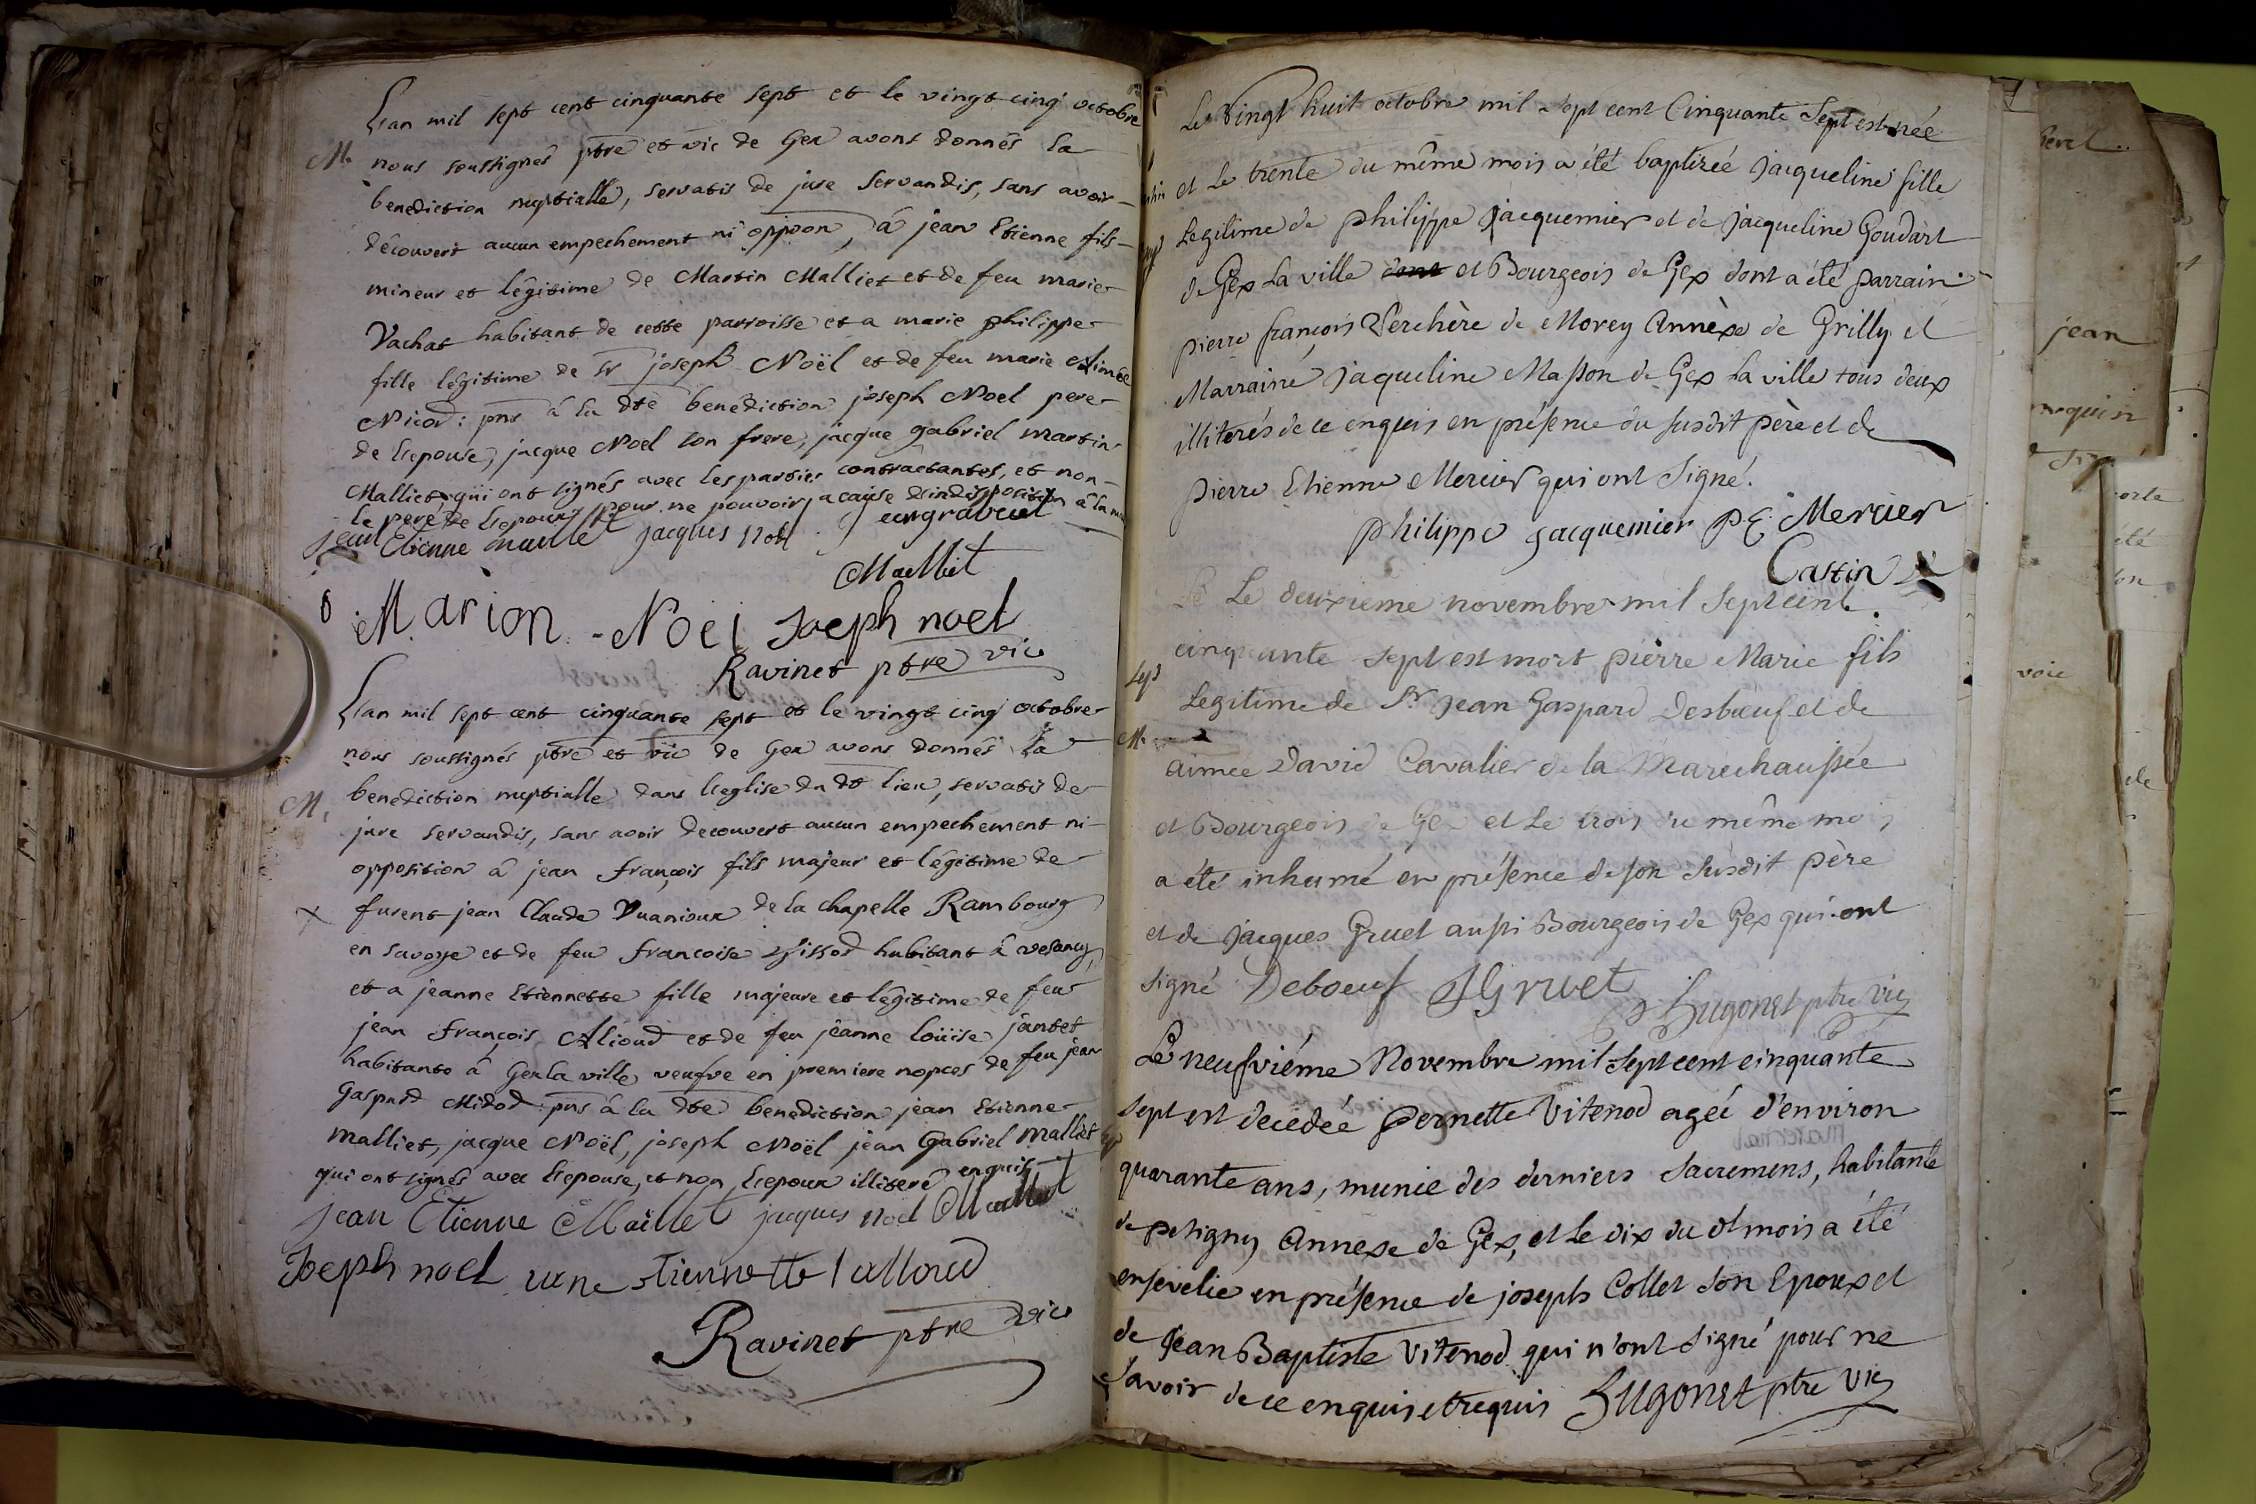 L'an mil sept cent cinquante sept et le vingt cinq octobre
M. nous soussignés ptre et vic de Gex avons donnés la
benediction nuptialle, servatis de jure servandis, sans avoir
découvert aucun empechement ni oppoon, â jean Etienne fils
mineur et légitime de Martin Malliet et de feu marie
Vachat habitant de cette parroisse et a marie philippe
fille légitime de Sr joseph Noël et de feu marie
Nicod: pns â la dte benédiction joseph Noel pere
de l'epouse, jacque Noel son frere, jacque gabriel martin
Malliet qui ont signés avec les parties contractantes, et non
le pere de l'epoux pour ne pouvoir a cause d'indisposition â la
jean Etienne maillet jacques Noel
Maillet
Marion Noel Joseph noel
Ravinet ptre vic
L'an mil sept cent cinquante sept et le vingt cinq octobre
nous soussignés ptre et vic de Gex avons donnés la
M. benediction nuptialle dans l'eglise du dt lieu, servatis de
jure servandis, sans avoir decouvert aucun empechement ni
opposition â jean françois fils majeur et légitime de
x furent jean Claude Vuanioux de la chapelle Rambourg
en savoye et de feu francoise habitant â vesancy,
et a jeanne Etiennette fille majeure et légitime de feu
jean françois Alioud et de feu jêanne loüise jantet
habitante â Gex la ville, veufve en premiere nopces de feu jean
Gaspard Midod: pns â la dte benediction jean Etienne
malliet, jacque Noël, joseph Noël jean Gabriel malliet
qui ont signés avec l'epouse, et non l'epoux illiteré enquis
jean Etienne Maillet jacques noel Maillet
Joseph noel tiennette alloud
Ravinet ptre vic
Le Vingt huit octobre mil sept cent Cinquante Sept est née
et Le trente du même mois a été baptizée jacqueline fille
Legitime de philippe jacquemier et de jacqueline Goudart
de Gex La ville dont et Bourgeois de Gex dont a été parrain
pierre françois Perchère de Morey Annèxe de Grilly et
Marraine jaqueline Masson de Gex La ville tous deux
illiterés de ce enquis en présence du susdit père et de
pierre Etienne Mercier qui ont signé.
philippe jacquemier PE Mercier
Castin
Le Le deuxieme novembre mil Sept cent
cinquante sept est mort pierre Marie fils
Legitime de Sr jean Gaspard Desbœuf et de
M.
aimée David Cavalier de la Marechaussée
et Bourgeois de Gex et Le trois du même mois
a été inhumé en présence de son susdit père
et de jacques Gruet aussi Bourgeois de Gex qui ont
signé Deboeuf JGruet
Hugonet ptre vic
Le neufviéme Novembre mil sept cent cinquante
sept est decedée pernette Vitenod agée d'environ
quarante ans, munie des derniers Sacremens, habitante
de petigny Annexe de Gex, et Le dix du dt mois a été
ensevelie en présence de joseph Collet son Epoux et
de Jean Baptiste Vitenod qui n'ont signé pour ne
savoir de ce enquis et requis Hugonet ptre vic
jean
voie